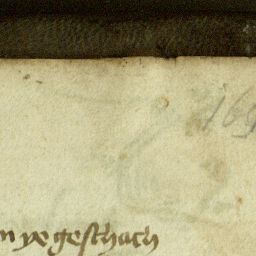 169
n ye geschach